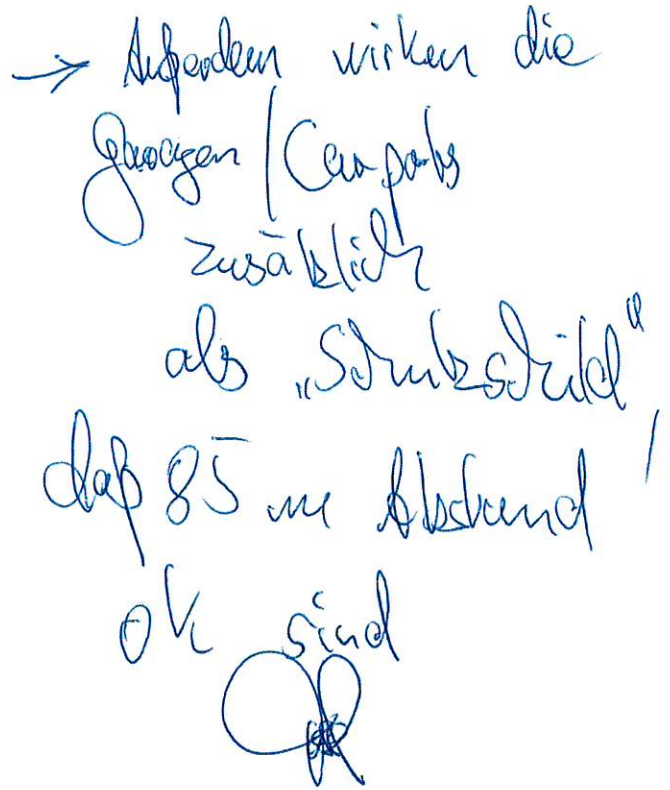 → Außerdem wirken die
Garagen / Carports
zusätzlich
als „Schutzschild“,
daß 85 m Abstand
ok sind